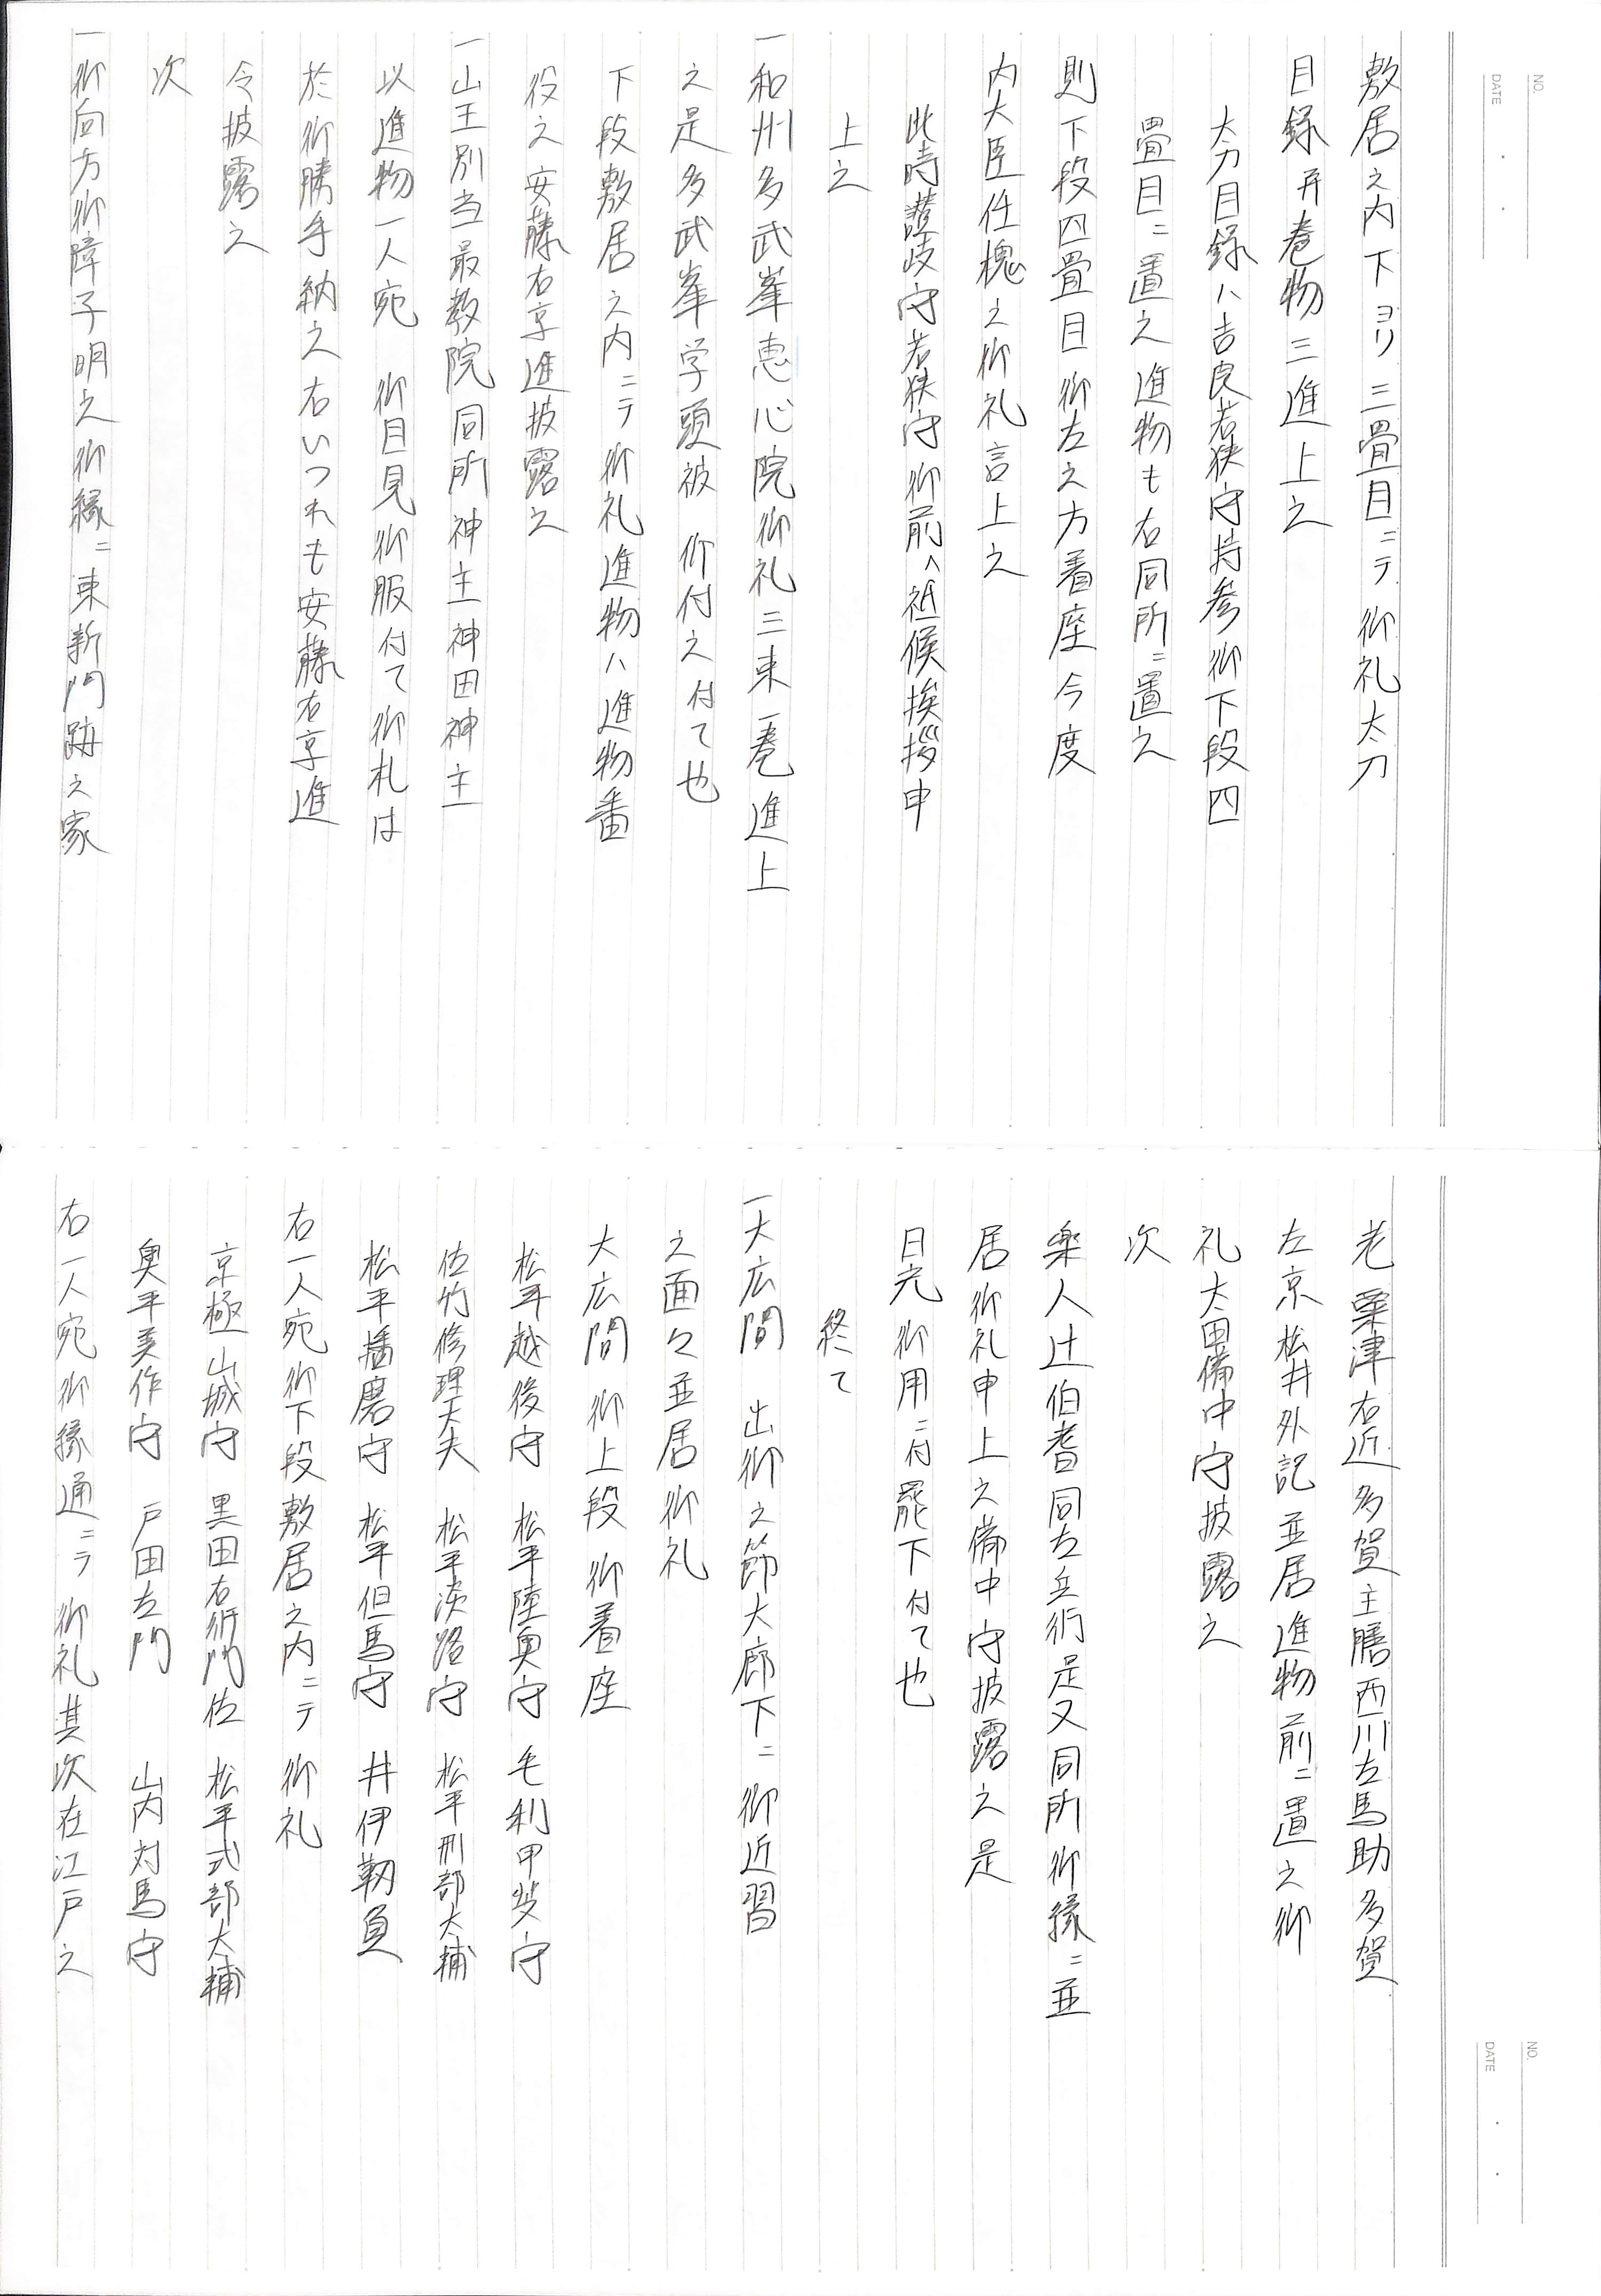 NO.
DATE
敷居之内下ヨリ三畳目ニテ御礼太刀
目録并巻物三進上之
太刀目録ハ吉良若狭守持参御下段四
畳目ニ置之進物も右同所ニ置之
則下段四畳目御左之方着座今度
内大臣任槐之御礼言上之
此時讃岐守若狭守御前へ祗候挨拶申
上之
一和州多武峯恵心院御礼三束一巻進上
之是多武峯学頭被 仰付之付て也
下段敷居之内ニテ御礼進物ハ進物番
役之安藤右京進披露之
一山王別当最教院同所神主神田神主
以進物一人宛 御目見御服付て御札は
於御勝手納之右いつれも安藤右京進
令披露之
次
一御向方御障子明之御縁ニ東新門跡之家
NO.
DATE
老粟津右近多賀主膳西川左馬助多賀
左京松井外記並居進物前ニ置之御
礼太田備中守披露之
次
楽人辻伯耆同左兵衛是又同所御縁ニ並
居御礼申上之備中守披露之是
日光御用ニ付罷下付て也
終て
一大広間 出御之節大廊下ニ御近習
之面々並居御礼
大広間御上段御着座
松平越後守 松平陸奥守 毛利甲斐守
佐竹修理大夫 松平淡路守 松平刑部大輔
松平播磨守 松平但馬守 井伊靭負
右一人宛御下段敷居之内ニテ御礼
京極山城守 黒田右衛門佐 松平式部大輔
奥平美作守 戸田左門 山内対馬守
右一人宛御縁通ニテ御礼其次在江戸之